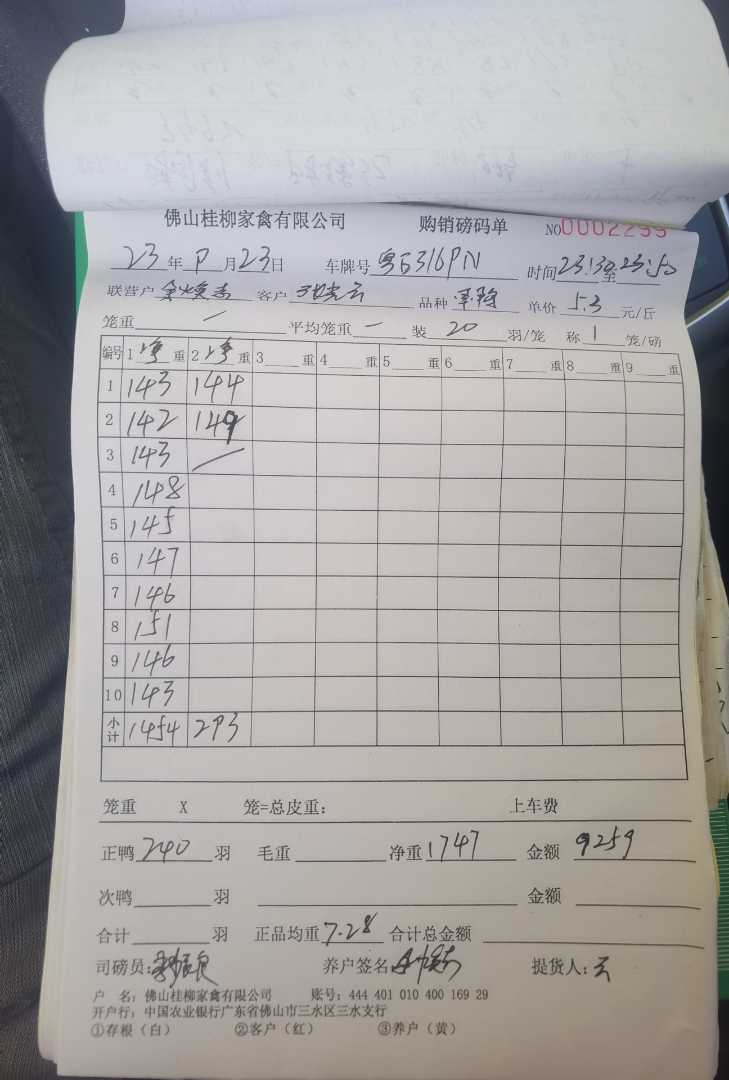 佛山桂柳家禽有限公司 购销磅码单 NO0002255
23年9月23日 车牌号 粤 316PN 时间23:30至23:50
联营户 客户 品种 单价 5.3 元/斤
笼重 — 平均笼重 — 装 20 羽/笼 称 1 笼/磅
编号 1 净 重 2 净 重 3 重 4 重 5 重 6 重 7 重 8 重 9 重
1 143 144
2 142 149
3 143 —
4 148
5 145
6 147
7 146
8 151
9 146
10 143
小计 1454 293
笼重 X 笼=总皮重: 上车费
正鸭 240 羽 毛重 净重 1747 金额 9259
次鸭 羽 金额
合计 羽 正品均重 7.28 合计总金额
司磅员: 养户签名: 提货人: 云
户 名: 佛山桂柳家禽有限公司 账号: 444 401 010 400 169 29
开户行: 中国农业银行广东省佛山市三水区三水支行
①存根(白) ②客户(红) ③养户(黄)